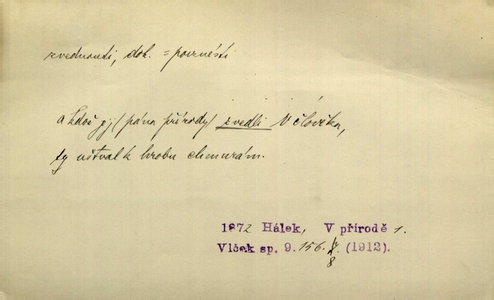 zvednouti, dok. = povznésti
a kdož jej (pána přírody) zvedli v člověka,
ty uštval k hrobu chmurám.
1872 Hálek, V přírodě 1.
Vlček sp. 9. 156. (1912).
8